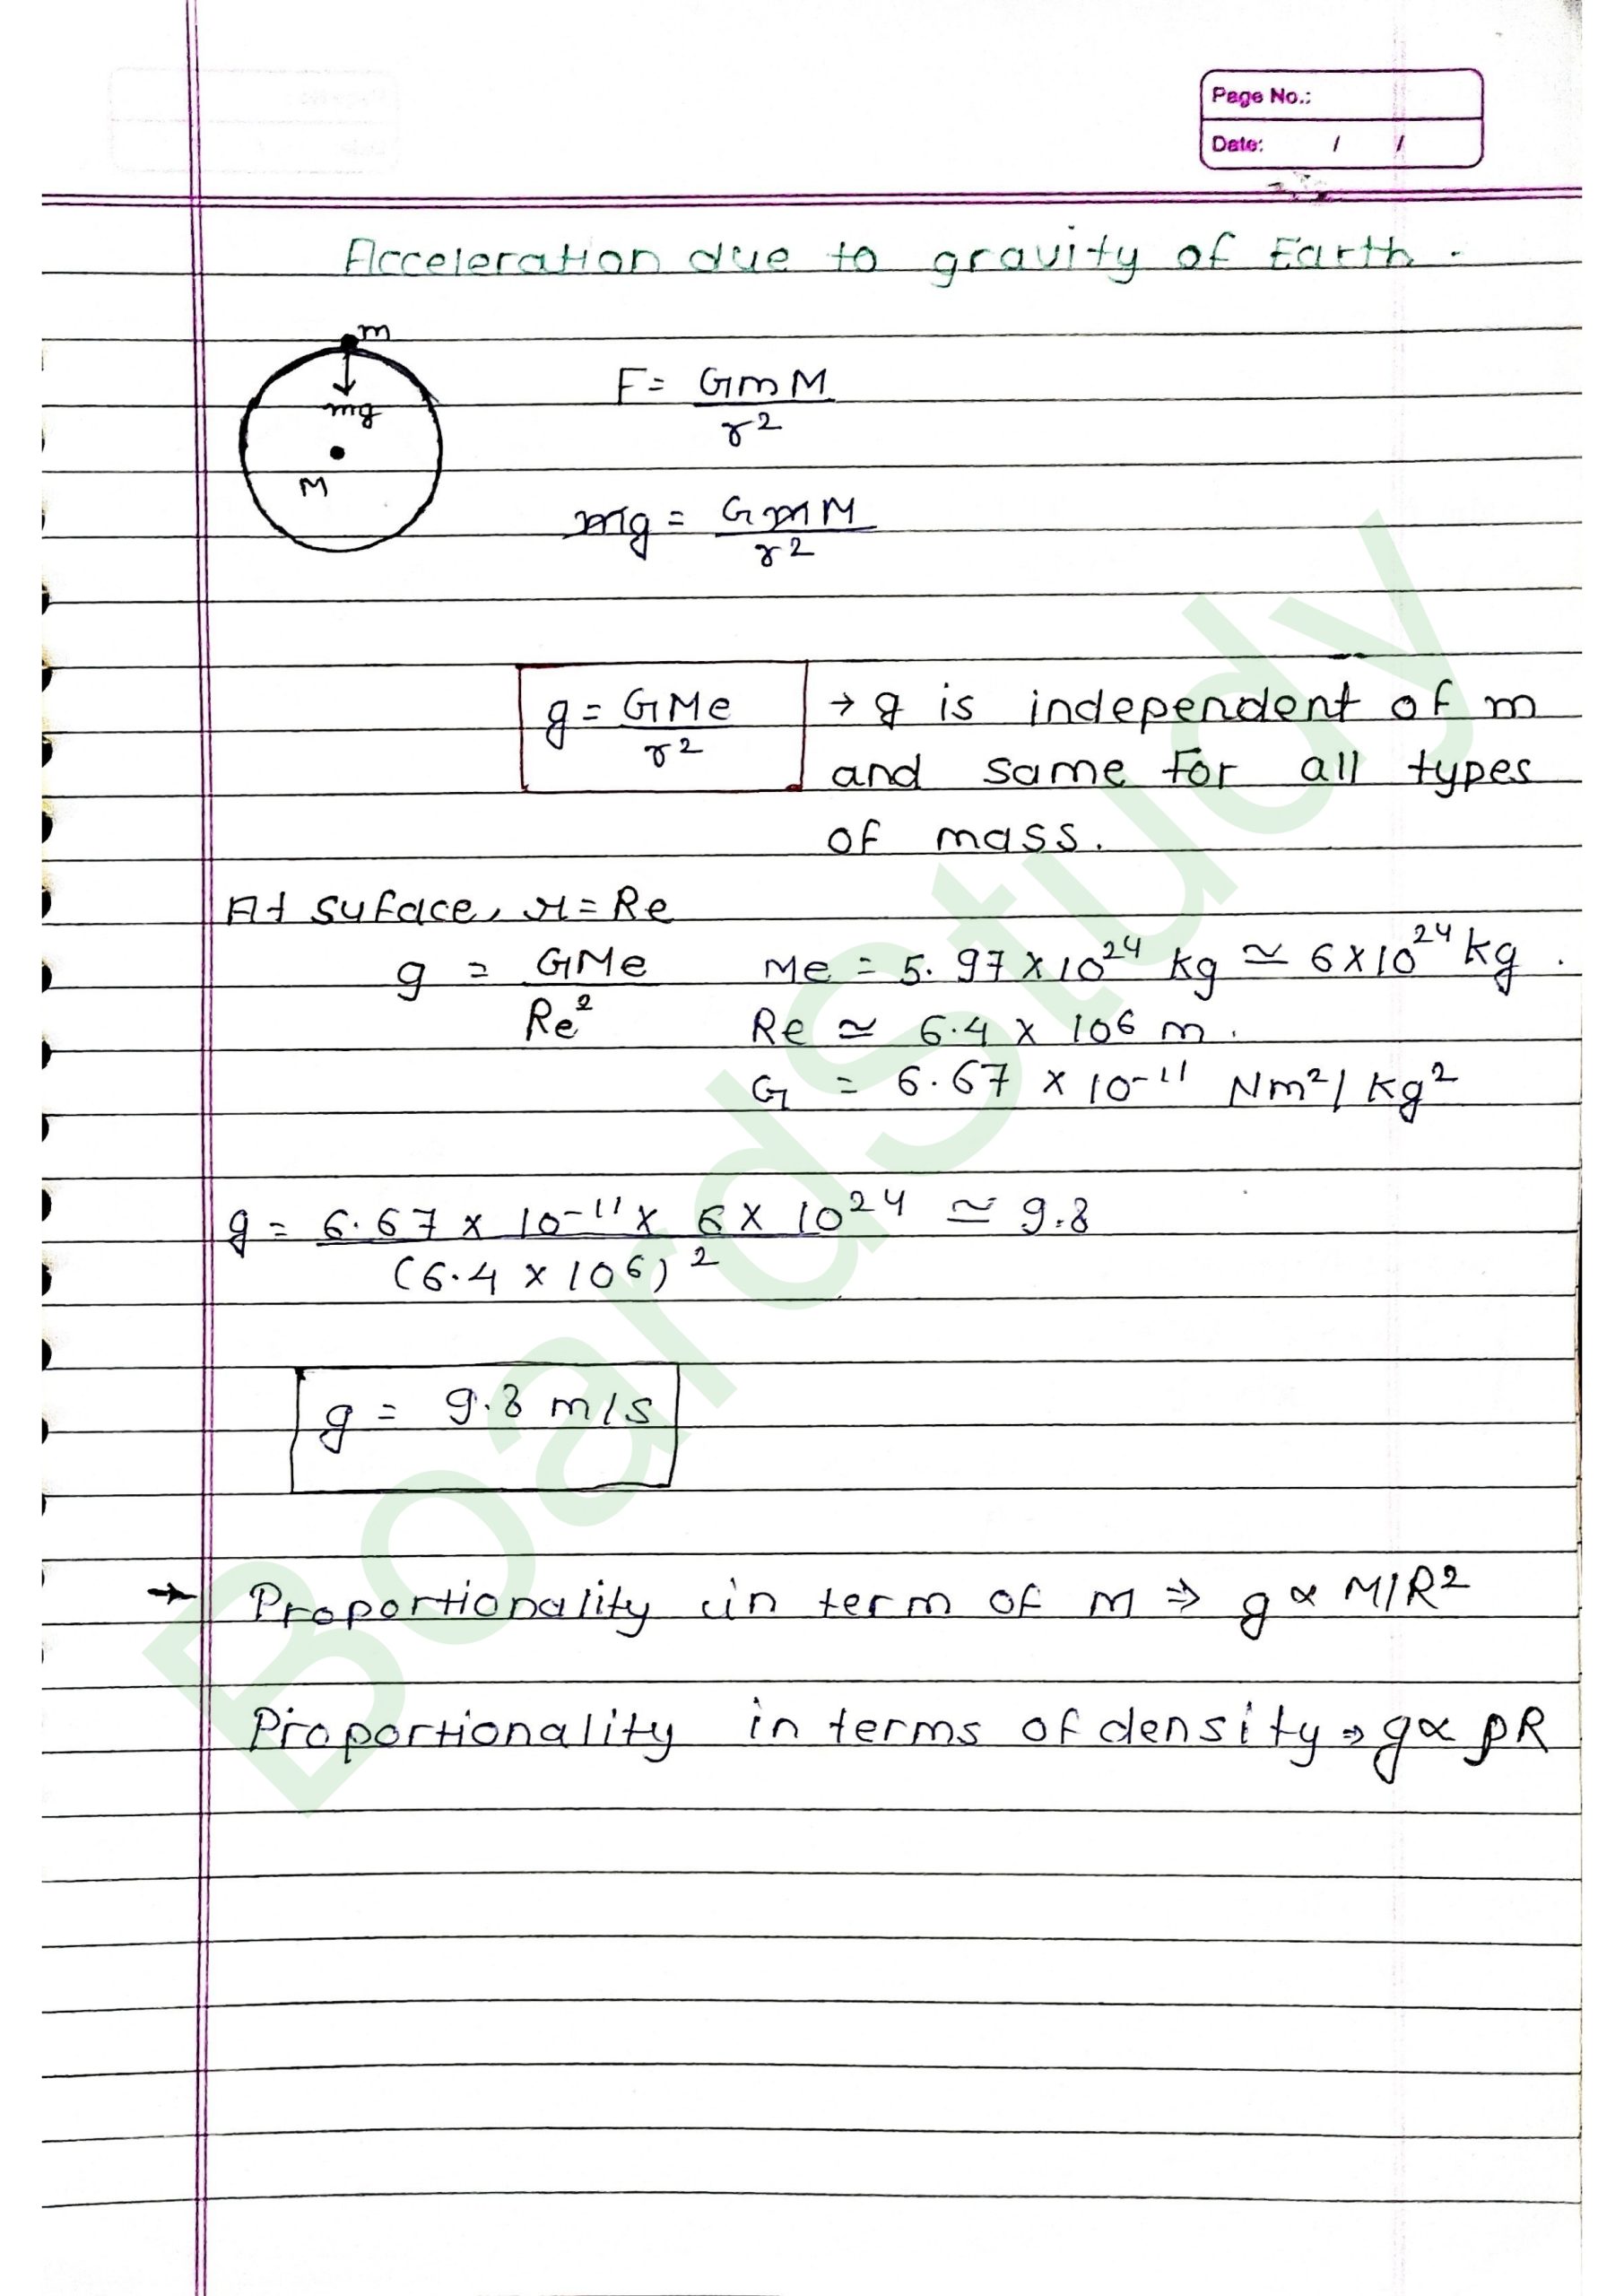 Page No.:
Date: / /
Acceleration due to gravity of Earth.
m
mg
M
F = GmM / r²
mg = GmM / r²
g = GMe / r² → g is independent of m
and same for all types
of mass.
At suface, r = Re
g = GMe / Re² Me = 5.97 × 10²⁴ kg ≃ 6 × 10²⁴ kg.
Re ≃ 6.4 × 10⁶ m.
G = 6.67 × 10⁻¹¹ Nm²/kg²
g = 6.67 × 10⁻¹¹ × 6 × 10²⁴ / (6.4 × 10⁶)² ≃ 9.8
g = 9.8 m/s
→ Proportionality in term of M ⇒ g ∝ M/R²
Proportionality in terms of density ⇒ g ∝ ρR
BoardStudy